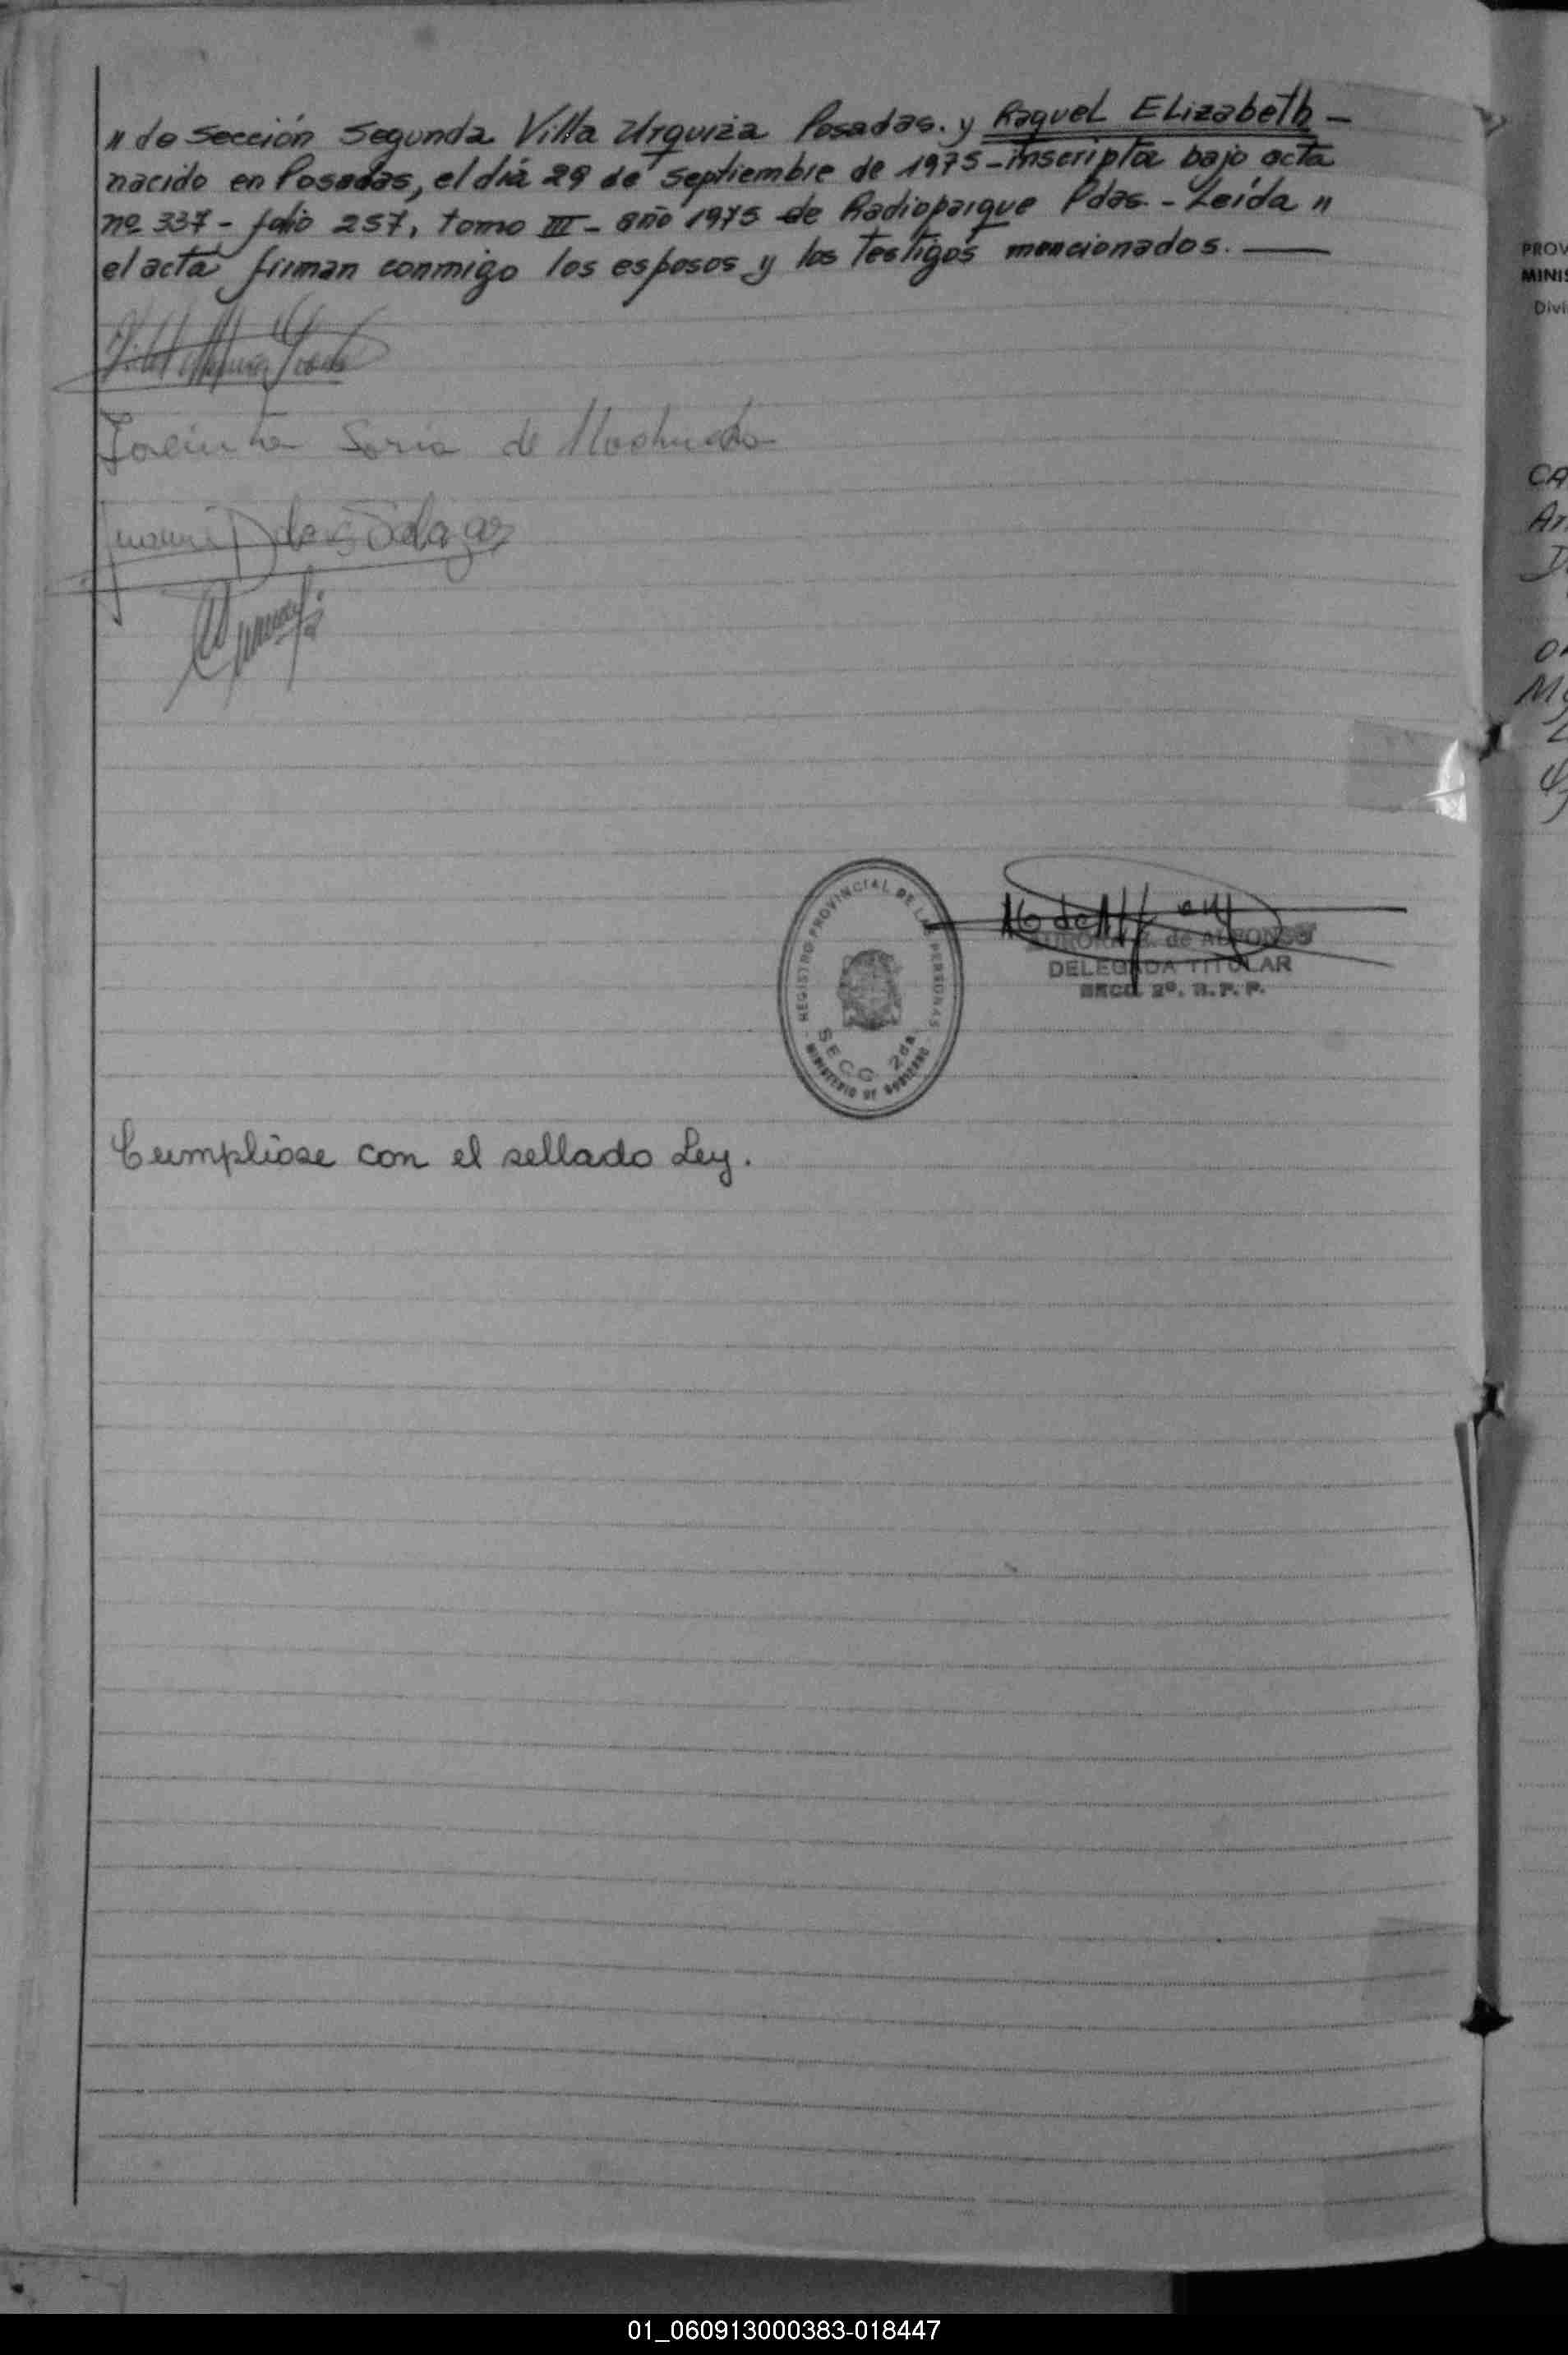 " de sección segunda Villa Urquiza Posadas. y Raquel Elizabeth -
nacido en Posadas, el día 29 de septiembre de 1975 - inscripta bajo acta
nº 337 - folio 257, tomo III - año 1975 de Radioparque Pdas. - Leída "
el acta firman conmigo los esposos y los testigos mencionados. —
Jacinta Soria de Machuca
Salazar
REGISTRO PROVINCIAL DE LAS PERSONAS
SECC. 2da.
MINISTERIO DE GOBIERNO
AURORA de ALFONSO
DELEGADA TITULAR
SECC. 2º. R.P.P.
Cumplióse con el sellado Ley.
PROV
MINIS
Divi
CA
01_060913000383-018447